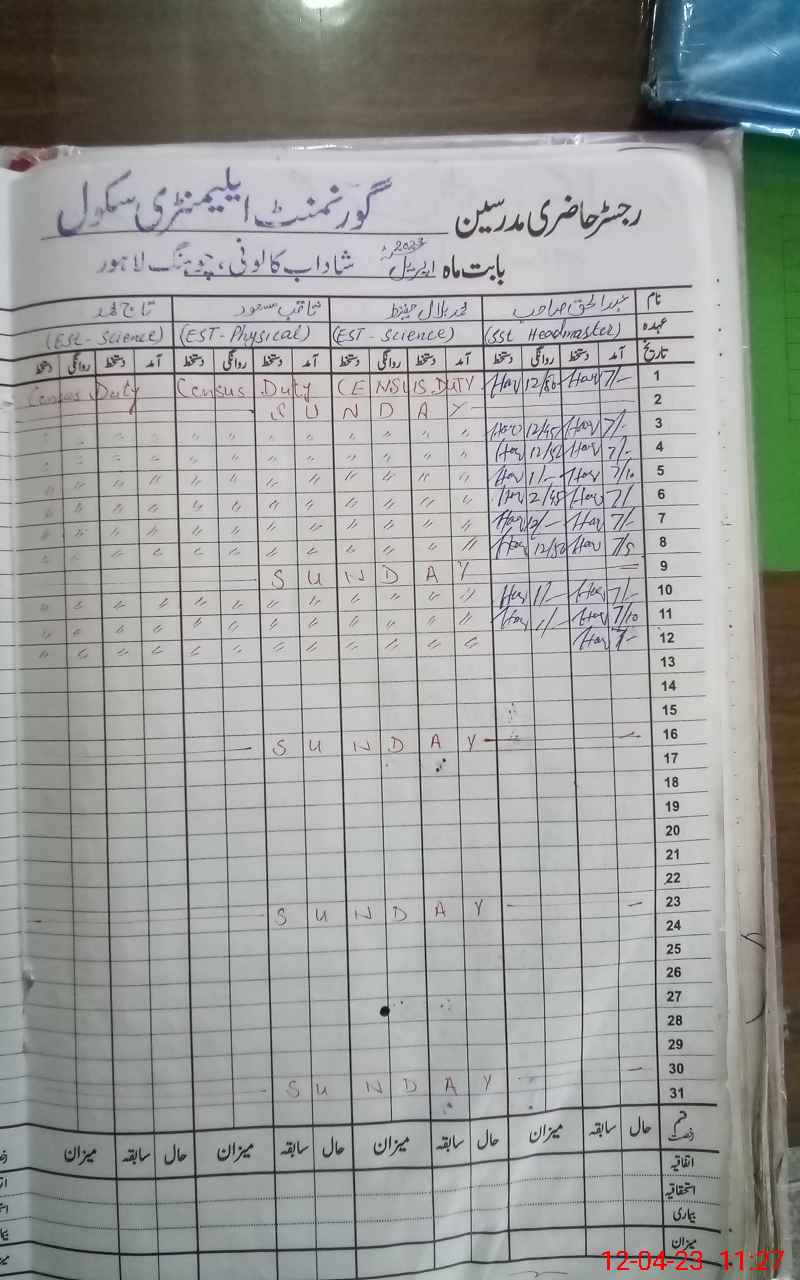 رجسٹر حاضری مدرسین گورنمنٹ ایلیمنٹری سکول
بابت ماہ اپریل 2023ء شاداب کالونی، چوہنگ لاہور
نام عبدالحق صاحب محمد بلال حفیظ ثاقب مسعود
عہدہ (SSt Headmaster) (EST - Science) (EST - Physical) (ESt - Science)
تاریخ آمد دستخط روانگی دستخط آمد دستخط روانگی دستخط آمد دستخط روانگی دستخط آمد روانگی دستخط
1 7/- 12/50 CENSUS DUTY Census Duty Census Duty
2 S U N D A Y
3 7/- 12/45 〃 〃 〃 〃 〃 〃 〃 〃 〃 〃 〃 〃
4 7/- 12/50 〃 〃 〃 〃 〃 〃 〃 〃 〃 〃 〃 〃
5 7/10 1/- 〃 〃 〃 〃 〃 〃 〃 〃 〃 〃 〃 〃
6 7/ 12/45 〃 〃 〃 〃 〃 〃 〃 〃 〃 〃 〃 〃
7 7/- 12/- 〃 〃 〃 〃 〃 〃 〃 〃 〃 〃 〃 〃
8 7/5 12/50 〃 〃 〃 〃 〃 〃 〃 〃 〃 〃 〃 〃
9 S U N D A Y
10 7/- 1/- 〃 〃 〃 〃 〃 〃 〃 〃 〃 〃 〃 〃
11 7/10 1/- 〃 〃 〃 〃 〃 〃 〃 〃 〃 〃 〃 〃
12 7/- 〃 〃 〃 〃 〃 〃 〃 〃 〃 〃 〃 〃
13
14
15
16 - S U N D A Y -
17
18
19
20
21
22
23 - S U N D A Y -
24
25
26
27
28
29
30 - S U N D A Y -
31
قسم رخصت حال سابقہ میزان حال سابقہ میزان حال سابقہ میزان حال سابقہ میزان
اتفاقیہ
استحقاقیہ
بیماری
میزان
12-04-23 11:27